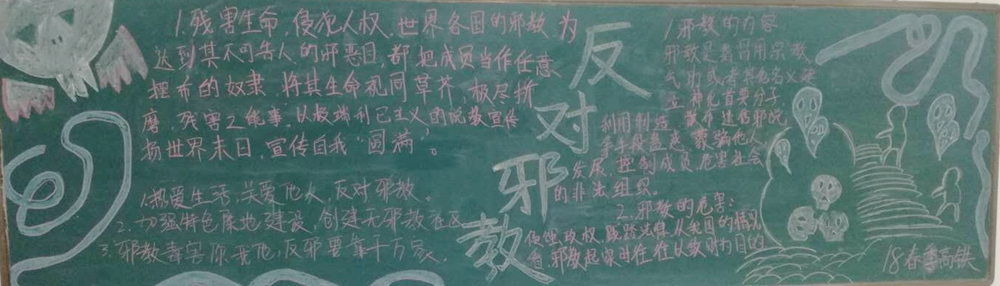 1.残害生命,侵犯人权.世界各国的邪教为
达到其不可告人的邪恶目,都把成员当作任意
摆布的奴隶,将其生命视同草芥,极尽折
磨,残害之能事.以极端利己主义的说教宣传
扬世界末日,宣传自我"圆满".
1.热爱生活,关爱他人,反对邪教.
2.加强特色阵地建设,创建无邪教社区
3.邪教毒害你我他,反邪要靠千万家.
反对邪教
1邪教的内容
邪教是指冒用宗教
气功或者其他名义建
立 神化首要分子,
利用制造、散布迷信邪说
等手段蛊惑、蒙骗他人
发展、控制成员 危害社会
的非法组织.
2.邪教的危害:
侵蚀政权,践踏法律,从我国的情况
看,邪教起家由往往以敛财为目的
18春季高铁